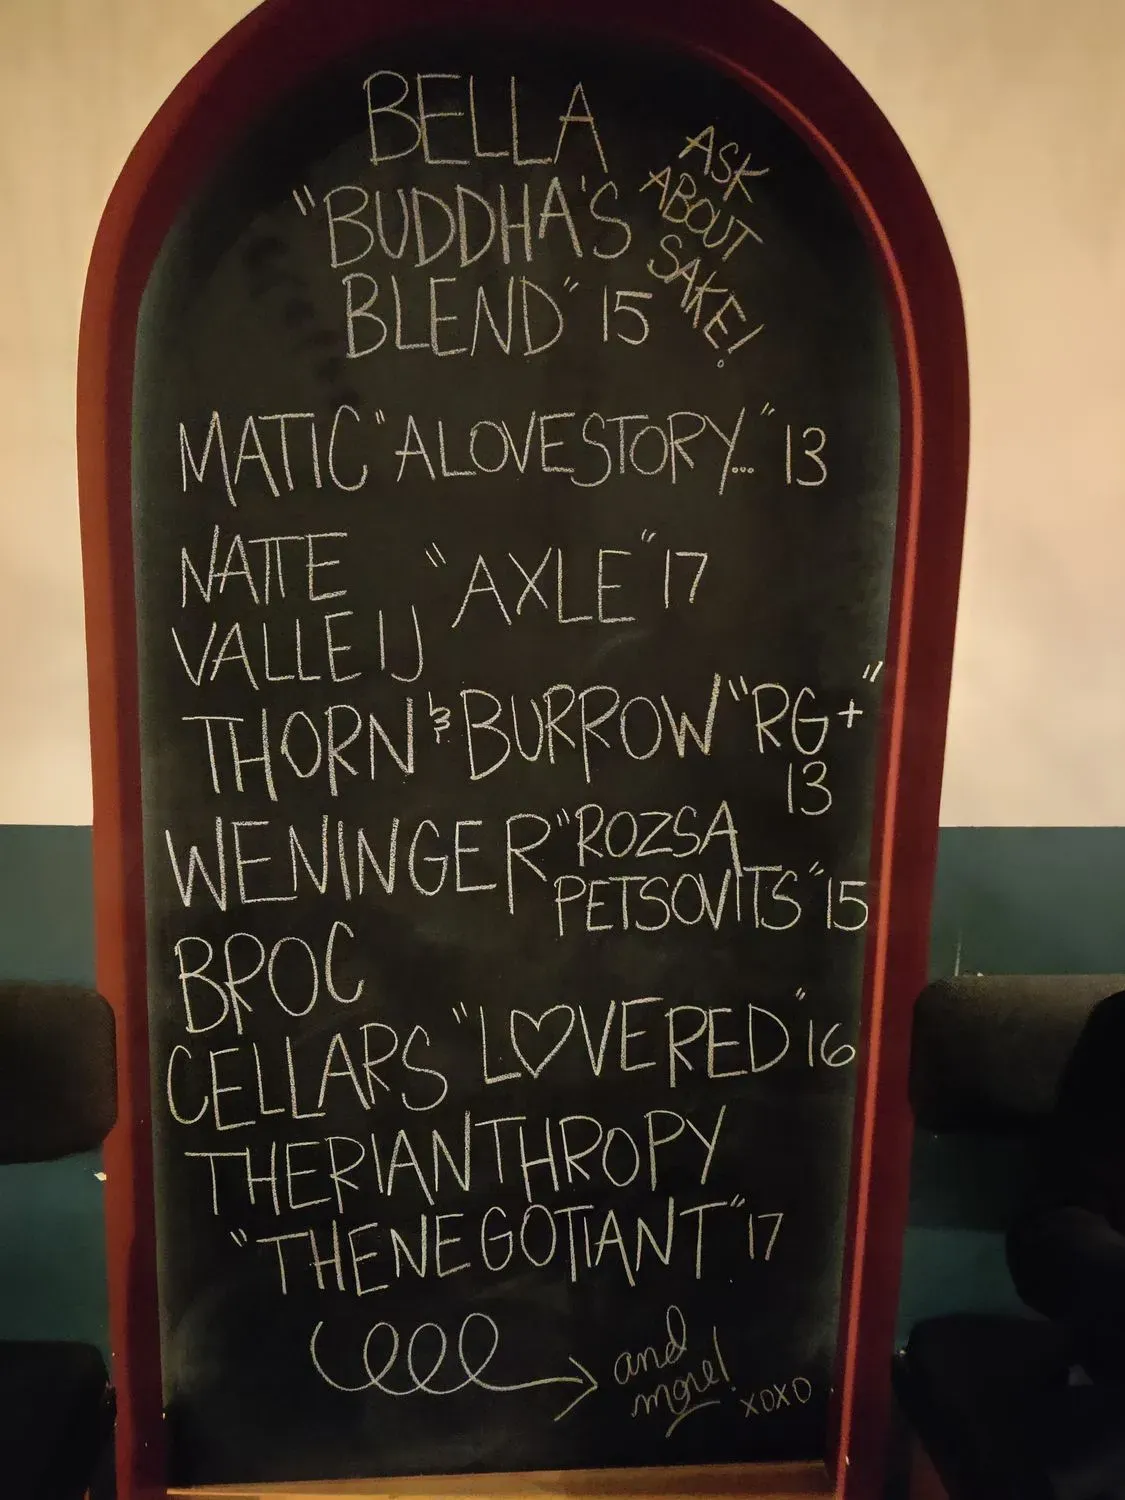 BELLA
"BUDDHA'S
BLEND" 15
ASK
ABOUT
SAKE!
MATIC "A LOVE STORY..." 13
NATTE
VALLEIJ "AXLE" 17
THORN & BURROW "RG+"
13
WENINGER "ROZSA
PETSOVITS" 15
BROC
CELLARS "L♡VE RED" 16
THERIANTHROPY
"THE NEGOTIANT" 17
and
more!
XOXO